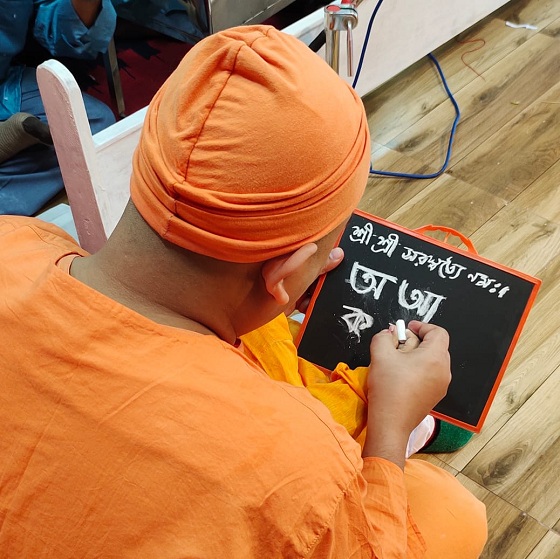 শ্রী শ্রী সরস্বত্যৈ নমঃ॥
অ আ
ক